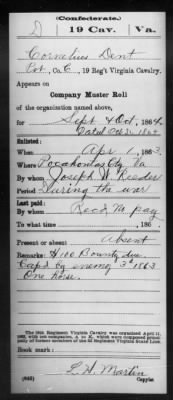 (Confederate.)
D 19 Cav. Va.
Cornelius Dent
Pvt., Co. C, 19 Reg't Virginia Cavalry.
Appears on
Company Muster Roll
of the organization named above,
for Sept & Oct, 1864.
Dated Oct 31, 1864
Enlisted:
When Apr 1, 1863.
Where Pocahontas Cty, Va
By whom Joseph W Reeder
Period During the war
Last paid:
By whom Rec'd no pay
To what time , 186 .
Present or absent Absent
Remarks: $100 Bounty due.
Cap'd by enemy 1863
One horse.
The 19th Regiment Virginia Cavalry was organized April 11, 1863, with ten companies, A to K, which were composed principally of former members of the 3d Regiment Virginia State Line.
Book mark:
(642) L. H. Martin
Copyist.